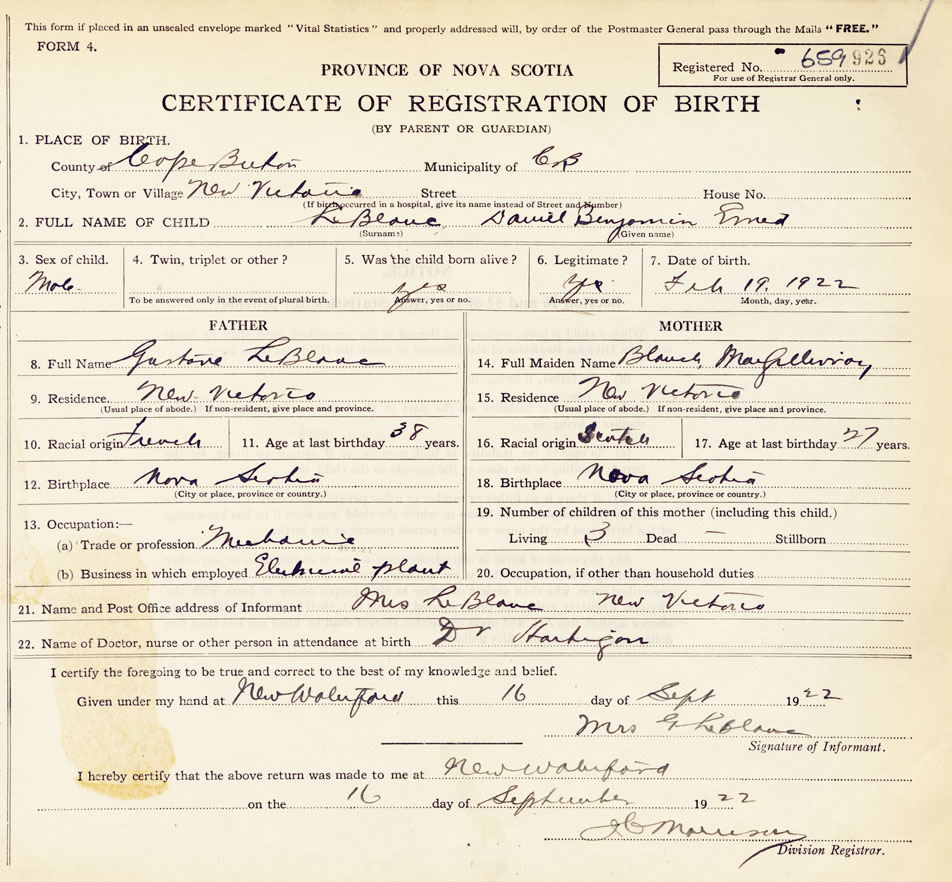 This form if placed in an unsealed envelope marked "Vital Statistics" and properly addressed will, by order of the Postmaster General pass through the Mails "FREE."
FORM 4.
Registered No. 659926
For use of Registrar General only.
PROVINCE OF NOVA SCOTIA
CERTIFICATE OF REGISTRATION OF BIRTH
(BY PARENT OR GUARDIAN)
1. PLACE OF BIRTH.
County of Cape Breton Municipality of C B
City, Town or Village New Victoria Street House No.
(If birth occurred in a hospital, give its name instead of Street and Number)
2. FULL NAME OF CHILD LeBlanc, Daniel Benjamin Ernest
(Surname) (Given name)
3. Sex of child. 4. Twin, triplet or other? 5. Was the child born alive? 6. Legitimate? 7. Date of birth.
Male yes yes Feb 19. 1922
To be answered only in the event of plural birth. Answer, yes or no. Answer, yes or no. Month, day, year.
FATHER
8. Full Name Gustave LeBlanc
9. Residence New Victoria
(Usual place of abode.) If non-resident, give place and province.
10. Racial origin French 11. Age at last birthday 38 years.
12. Birthplace Nova Scotia
(City or place, province or country.)
13. Occupation:—
(a) Trade or profession Mechanic
(b) Business in which employed Electrical plant
MOTHER
14. Full Maiden Name Blanch MacGillivray
15. Residence New Victoria
(Usual place of abode.) If non-resident, give place and province.
16. Racial origin Scotch 17. Age at last birthday 27 years.
18. Birthplace Nova Scotia
(City or place, province or country.)
19. Number of children of this mother (including this child.)
Living 3 Dead — Stillborn
20. Occupation, if other than household duties
21. Name and Post Office address of Informant Mrs LeBlanc New Victoria
22. Name of Doctor, nurse or other person in attendance at birth Dr Hartigan
I certify the foregoing to be true and correct to the best of my knowledge and belief.
Given under my hand at New Waterford this 16 day of Sept 1922
Mrs G LeBlanc
Signature of Informant.
I hereby certify that the above return was made to me at New Waterford
on the 16 day of September 1922
J C Morrison
Division Registrar.